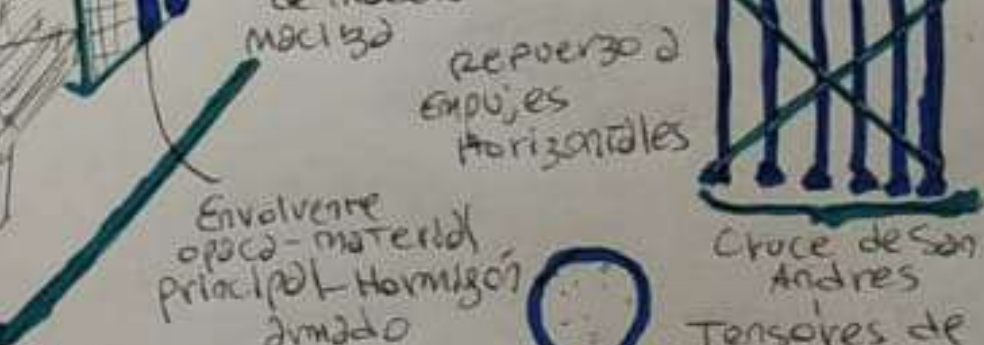 maciza
Repuerzo a
Empujes
Horizontales
Envolvente
opaca-material
principal-Hormigón
armado
Cruce de San
Andres
Tensores de